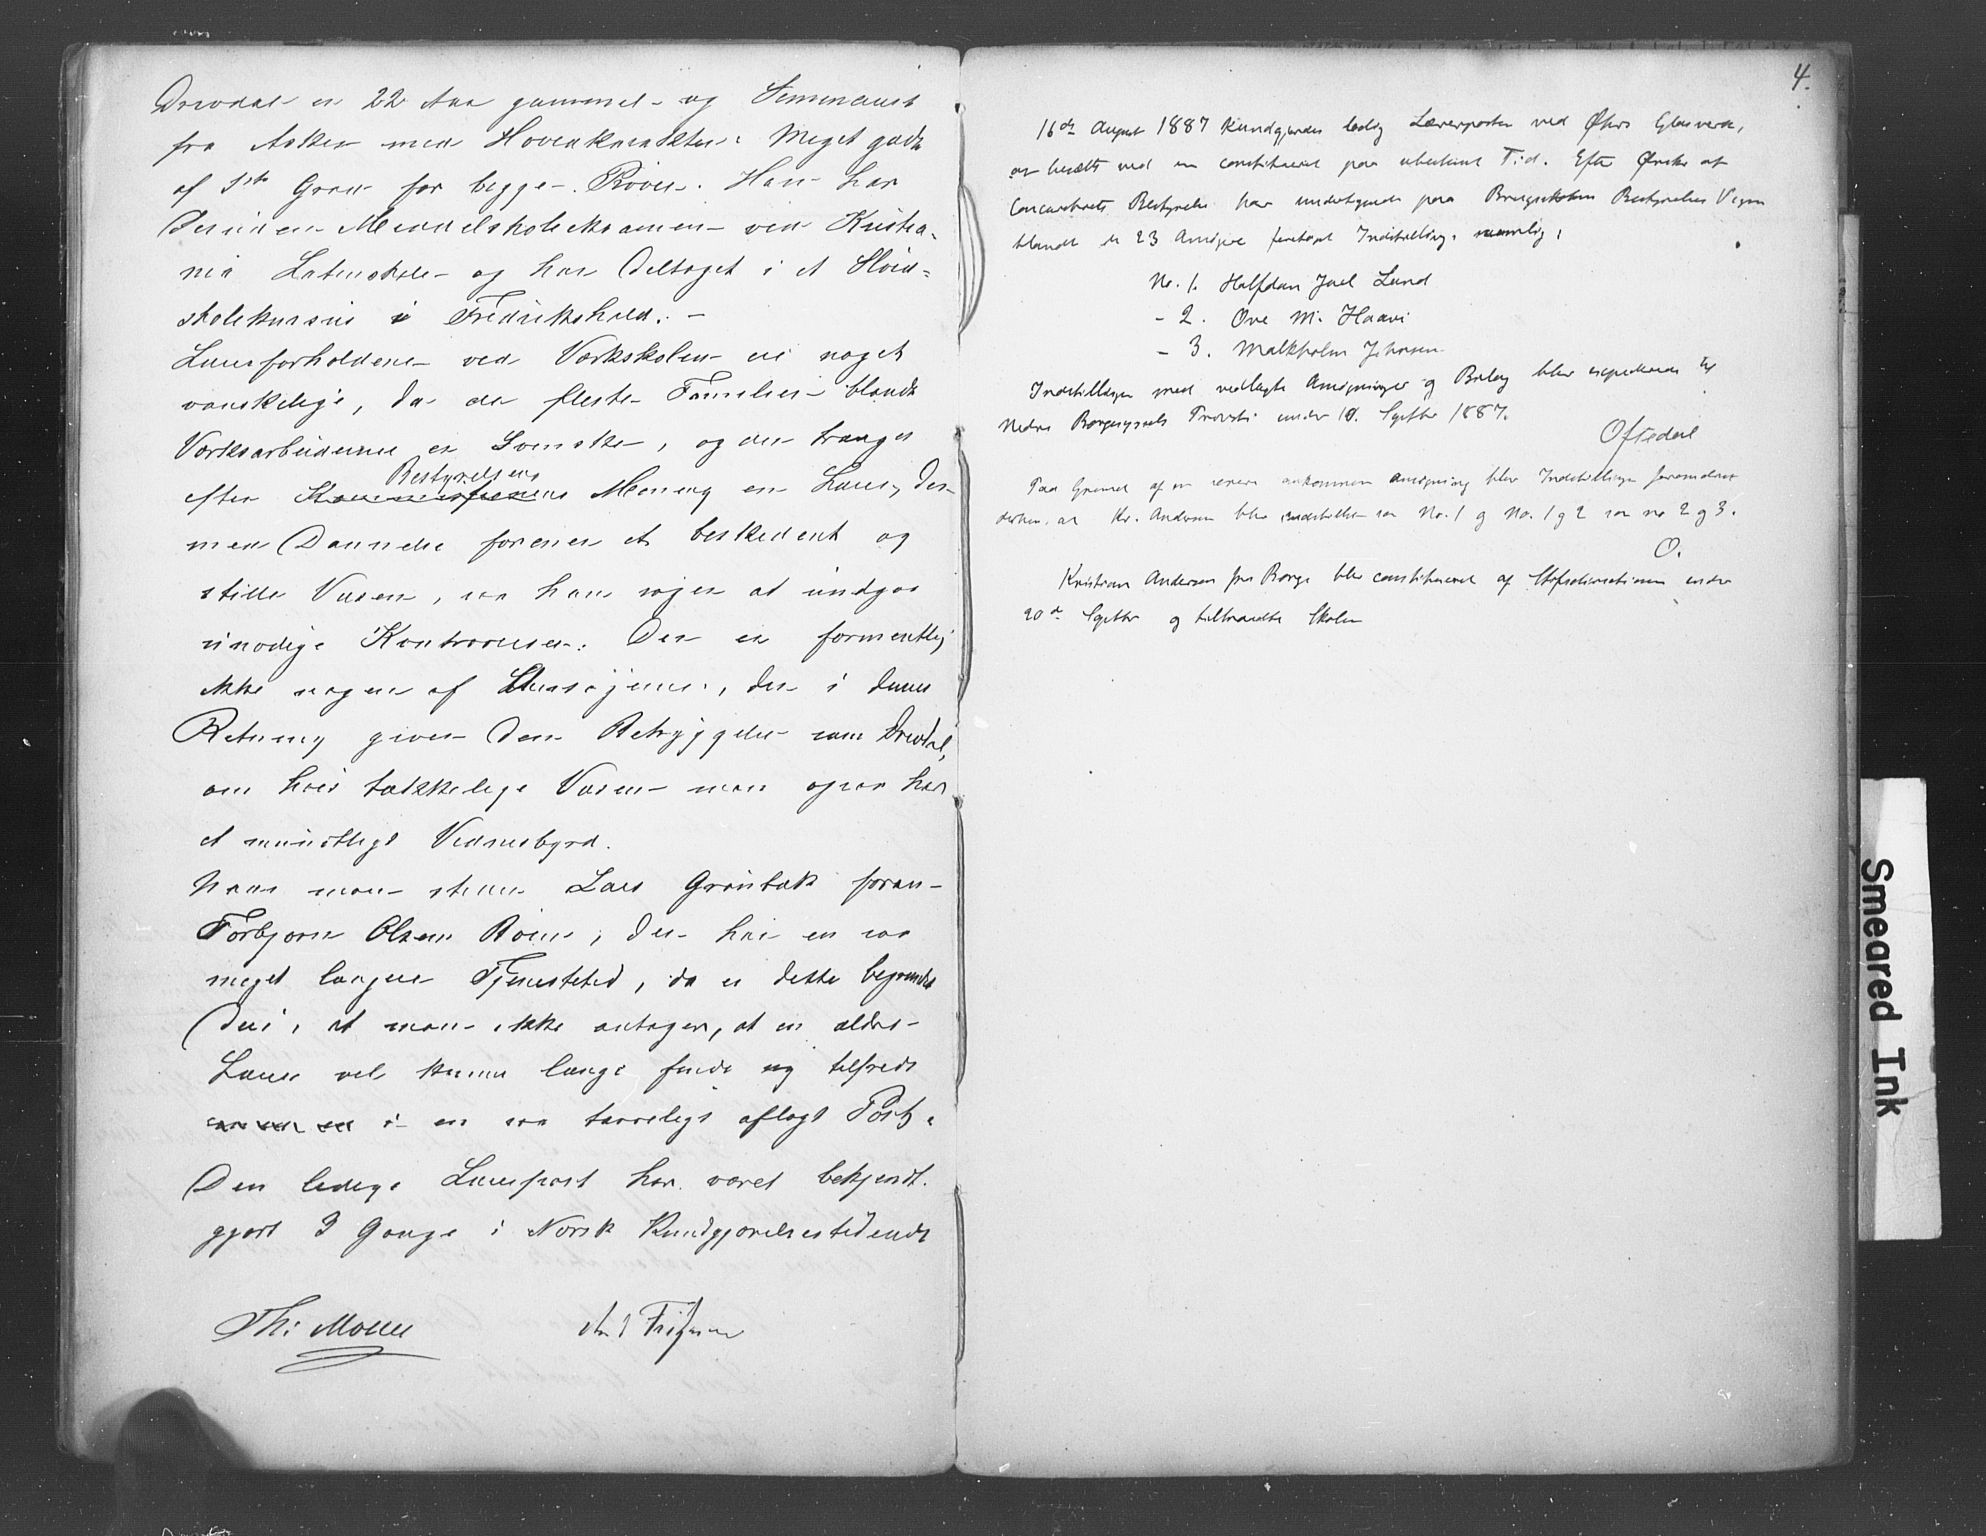 Drevdal er 22 Aar gammel og Seminarist
fra Asker med Hovedkarakter: Meget godt
af 1ste Grad for begge Prøver. Han har
desuden Middelskoleexamen ved Kristia-
nia Latinskole og har deltaget i et Sløid-
skolekursus i Fredrikshald. -
Lærerforholdene ved Værkskolen er noget
vanskelige, da de fleste Familier blandt
Værksarbeiderne er Svenske, og der trænges
Bestyrelsens
efter Kommissionens Mening en Lærer, der
med Dannelse forener et beskedent og
stille Væsen, saa han søger at undgaa
unødige Kontroverser. Der er formentlig
ikke nogen af Ansøgerne, der i denne
Retning giver den Betryggelse som Drevdal,
om hvis tækkelige Væsen man ogsaa har
et mundtligt Vidnesbyrd.
Naar man stiller Lars Grønbæk foran
Torbjørn Olsen Roen, der har en saa
meget længere Tjenestetid, da er dette begrundet
deri, at man ikke antager, at en ældre
Lærer vel kunde længe finde sig tilfreds
i en saa tarveligt aflagt Post.
Den ledige Lærerpost har været bekjendt-
gjort 3 Gange i Norsk Kundgjørelsestidende
Th: Møller
4.
16de August 1887 kundgjordes ledig Lærerposten ved Østre Glasværk,
at besætte ved en constitueret paa ubestemt Tid. Efter Ønske af
Bestyrelse har undertegnede paa Brugsskolens Bestyrelses Vegne
blandt de 23 Ansøgere foretaget Indstilling, nemlig:
No. 1. Halfdan Joel Lund
- 2. Ove M. Haavi
- 3. Malkholm Johnsen
Indstillingen med vedlagte Ansøgninger og Bilag blev expederede til
Nedre Borgesyssels Provsti under 10. Septbr 1887.
Oftedal
Paa Grund af en senere ankommen Ansøgning blev Indstillingen forandret
derhen, at Kr. Andersen blev indstillet som No. 1 og No. 1 og 2 som no 2 og 3.
O.
Kristian Andersen fra Borge blev constitueret af Stiftsdirectionen under
20de Septbr og tiltraadte Skolen
Smeared Ink